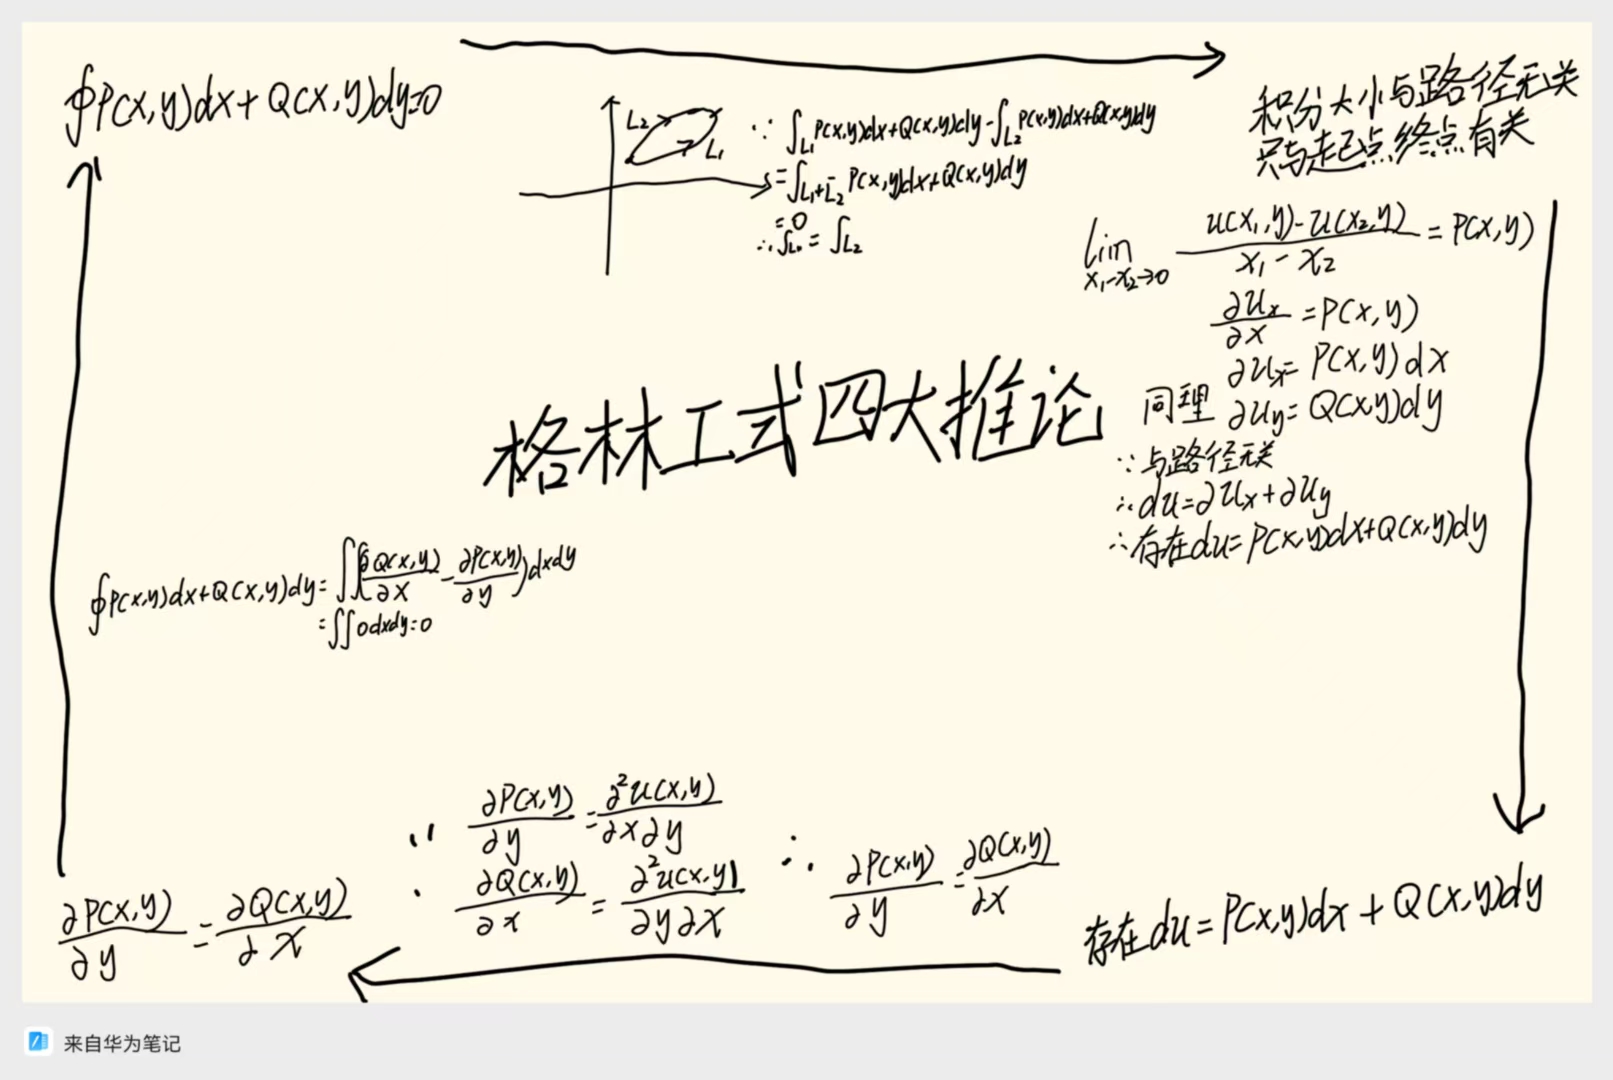 ∮P(x,y)dx+Q(x,y)dy=0
积分大小与路径无关
只与起点终点有关
L2
L1
∵ ∫L1 P(x,y)dx+Q(x,y)dy-∫L2 P(x,y)dx+Q(x,y)dy
=∫L1+L2⁻ P(x,y)dx+Q(x,y)dy
=0
∴ ∫L1 = ∫L2
lim x1-x2→0 (u(x1,y)-u(x2,y))/(x1-x2) = P(x,y)
∂ux/∂x = P(x,y)
∂ux= P(x,y)dx
同理 ∂uy= Q(x,y)dy
∵与路径无关
∴du=∂ux+∂uy
∴存在du=P(x,y)dx+Q(x,y)dy
格林工式四大推论
∮P(x,y)dx+Q(x,y)dy=∬(∂Q(x,y)/∂x-∂P(x,y)/∂y)dxdy
=∬0dxdy=0
∵ ∂P(x,y)/∂y=∂²u(x,y)/∂x∂y
∂Q(x,y)/∂x = ∂²u(x,y)/∂y∂x
∴ ∂P(x,y)/∂y=∂Q(x,y)/∂x
∂P(x,y)/∂y=∂Q(x,y)/∂x
存在du=P(x,y)dx+Q(x,y)dy
来自华为笔记